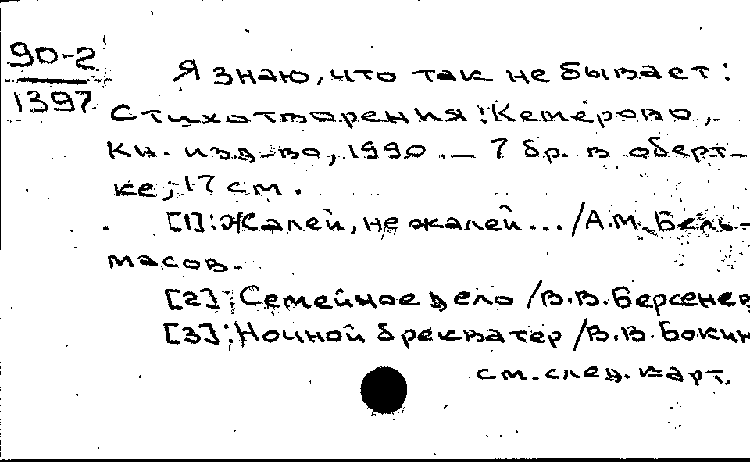 90-2
1397
Я знаю, что так не бывает:
Стихотворения. Кемерово,
Кн. изд-во, 1990. — 7 бр. в оберт-
ке; 17 см.
[1]: Жалей, не жалей... / А.М. Бель-
масов.
[2]: Семейное дело / В.В. Берсенев
[3]: Ночной брекватер / В.В. Бокин
см. след. карт.